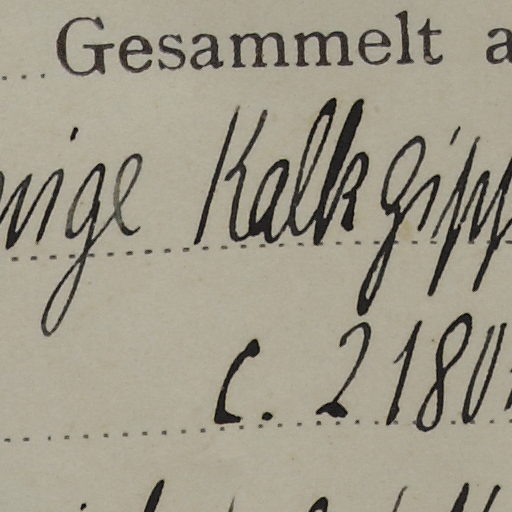 Gesammelt a
nige Kalkgipp
c. 2180